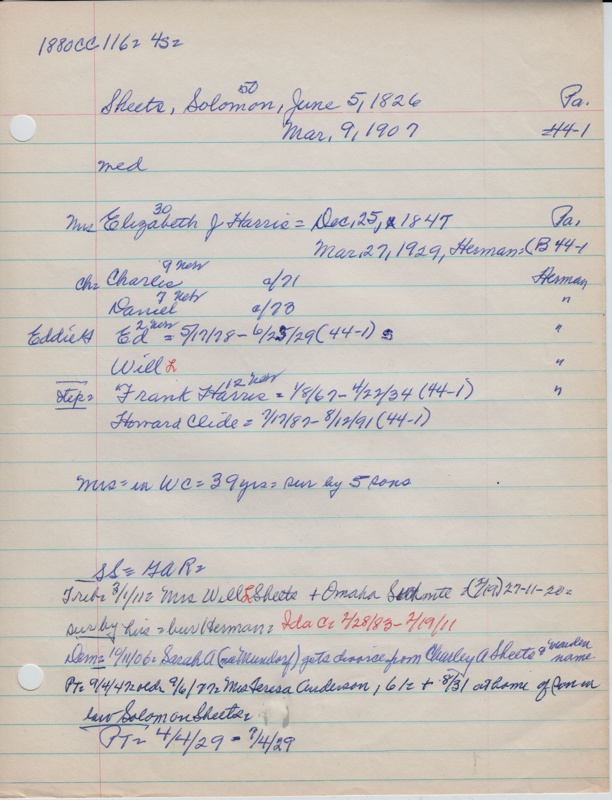 1880CC 116= 4S=
50
Sheets, Solomon, June 5, 1826 Pa.
Mar, 9, 1907 44-1
med
30
Mrs Elizabeth J Harris = Dec, 25, 1847 Pa,
Mar, 27, 1929, Herman= (B 44-1
9 Neb
ch= Charles a/71 Herman
7 Neb
Daniel a/73 "
2 Neb
Eddie H Ed = 5/17/78 - 6/25/29 (44-1) "
Will L "
12 Neb
Step= "Frank Harris = 1/8/67 - 4/22/34 (44-1) "
Howard Clide = 7/17/87 - 8/12/91 (44-1)
Mrs = in WC = 39 yrs = sur by 5 sons
SS = GAR =
Trib= 3/1/11= Mrs Will L Sheets + Omaha = (2/19) 27-11-20=
sur by = bur Herman= Ida C= 2/28/83 - 2/19/11
Dem= 10/11/06= Sarah A (nee Mundorf) gets divorce from Charley A Sheets & maiden name
PT= 9/4/47= = 9/6/77= Mrs Teresa Anderson, 61= + 8/31 at home of son in
law Solomon Sheets=
PT= 4/4/29 - 7/4/29